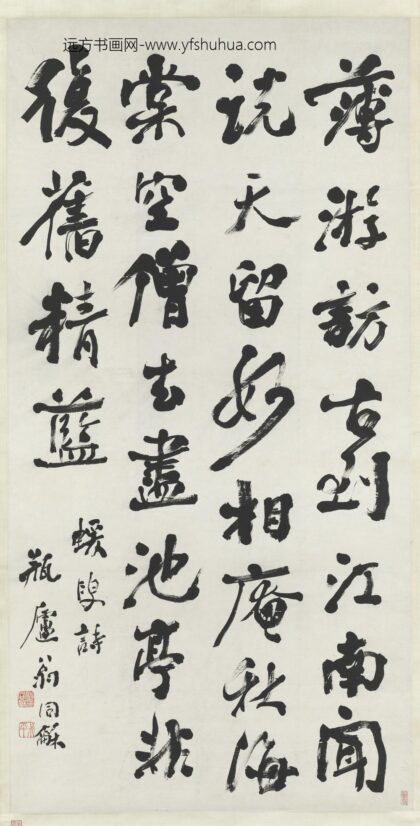 远方书画网-www.yfshuhua.com
薄游訪古刹江南聞
說天留妙相庵秋海
棠空僧去盡池亭非
復舊精藍
蝯叟詩
瓶廬翁同龢